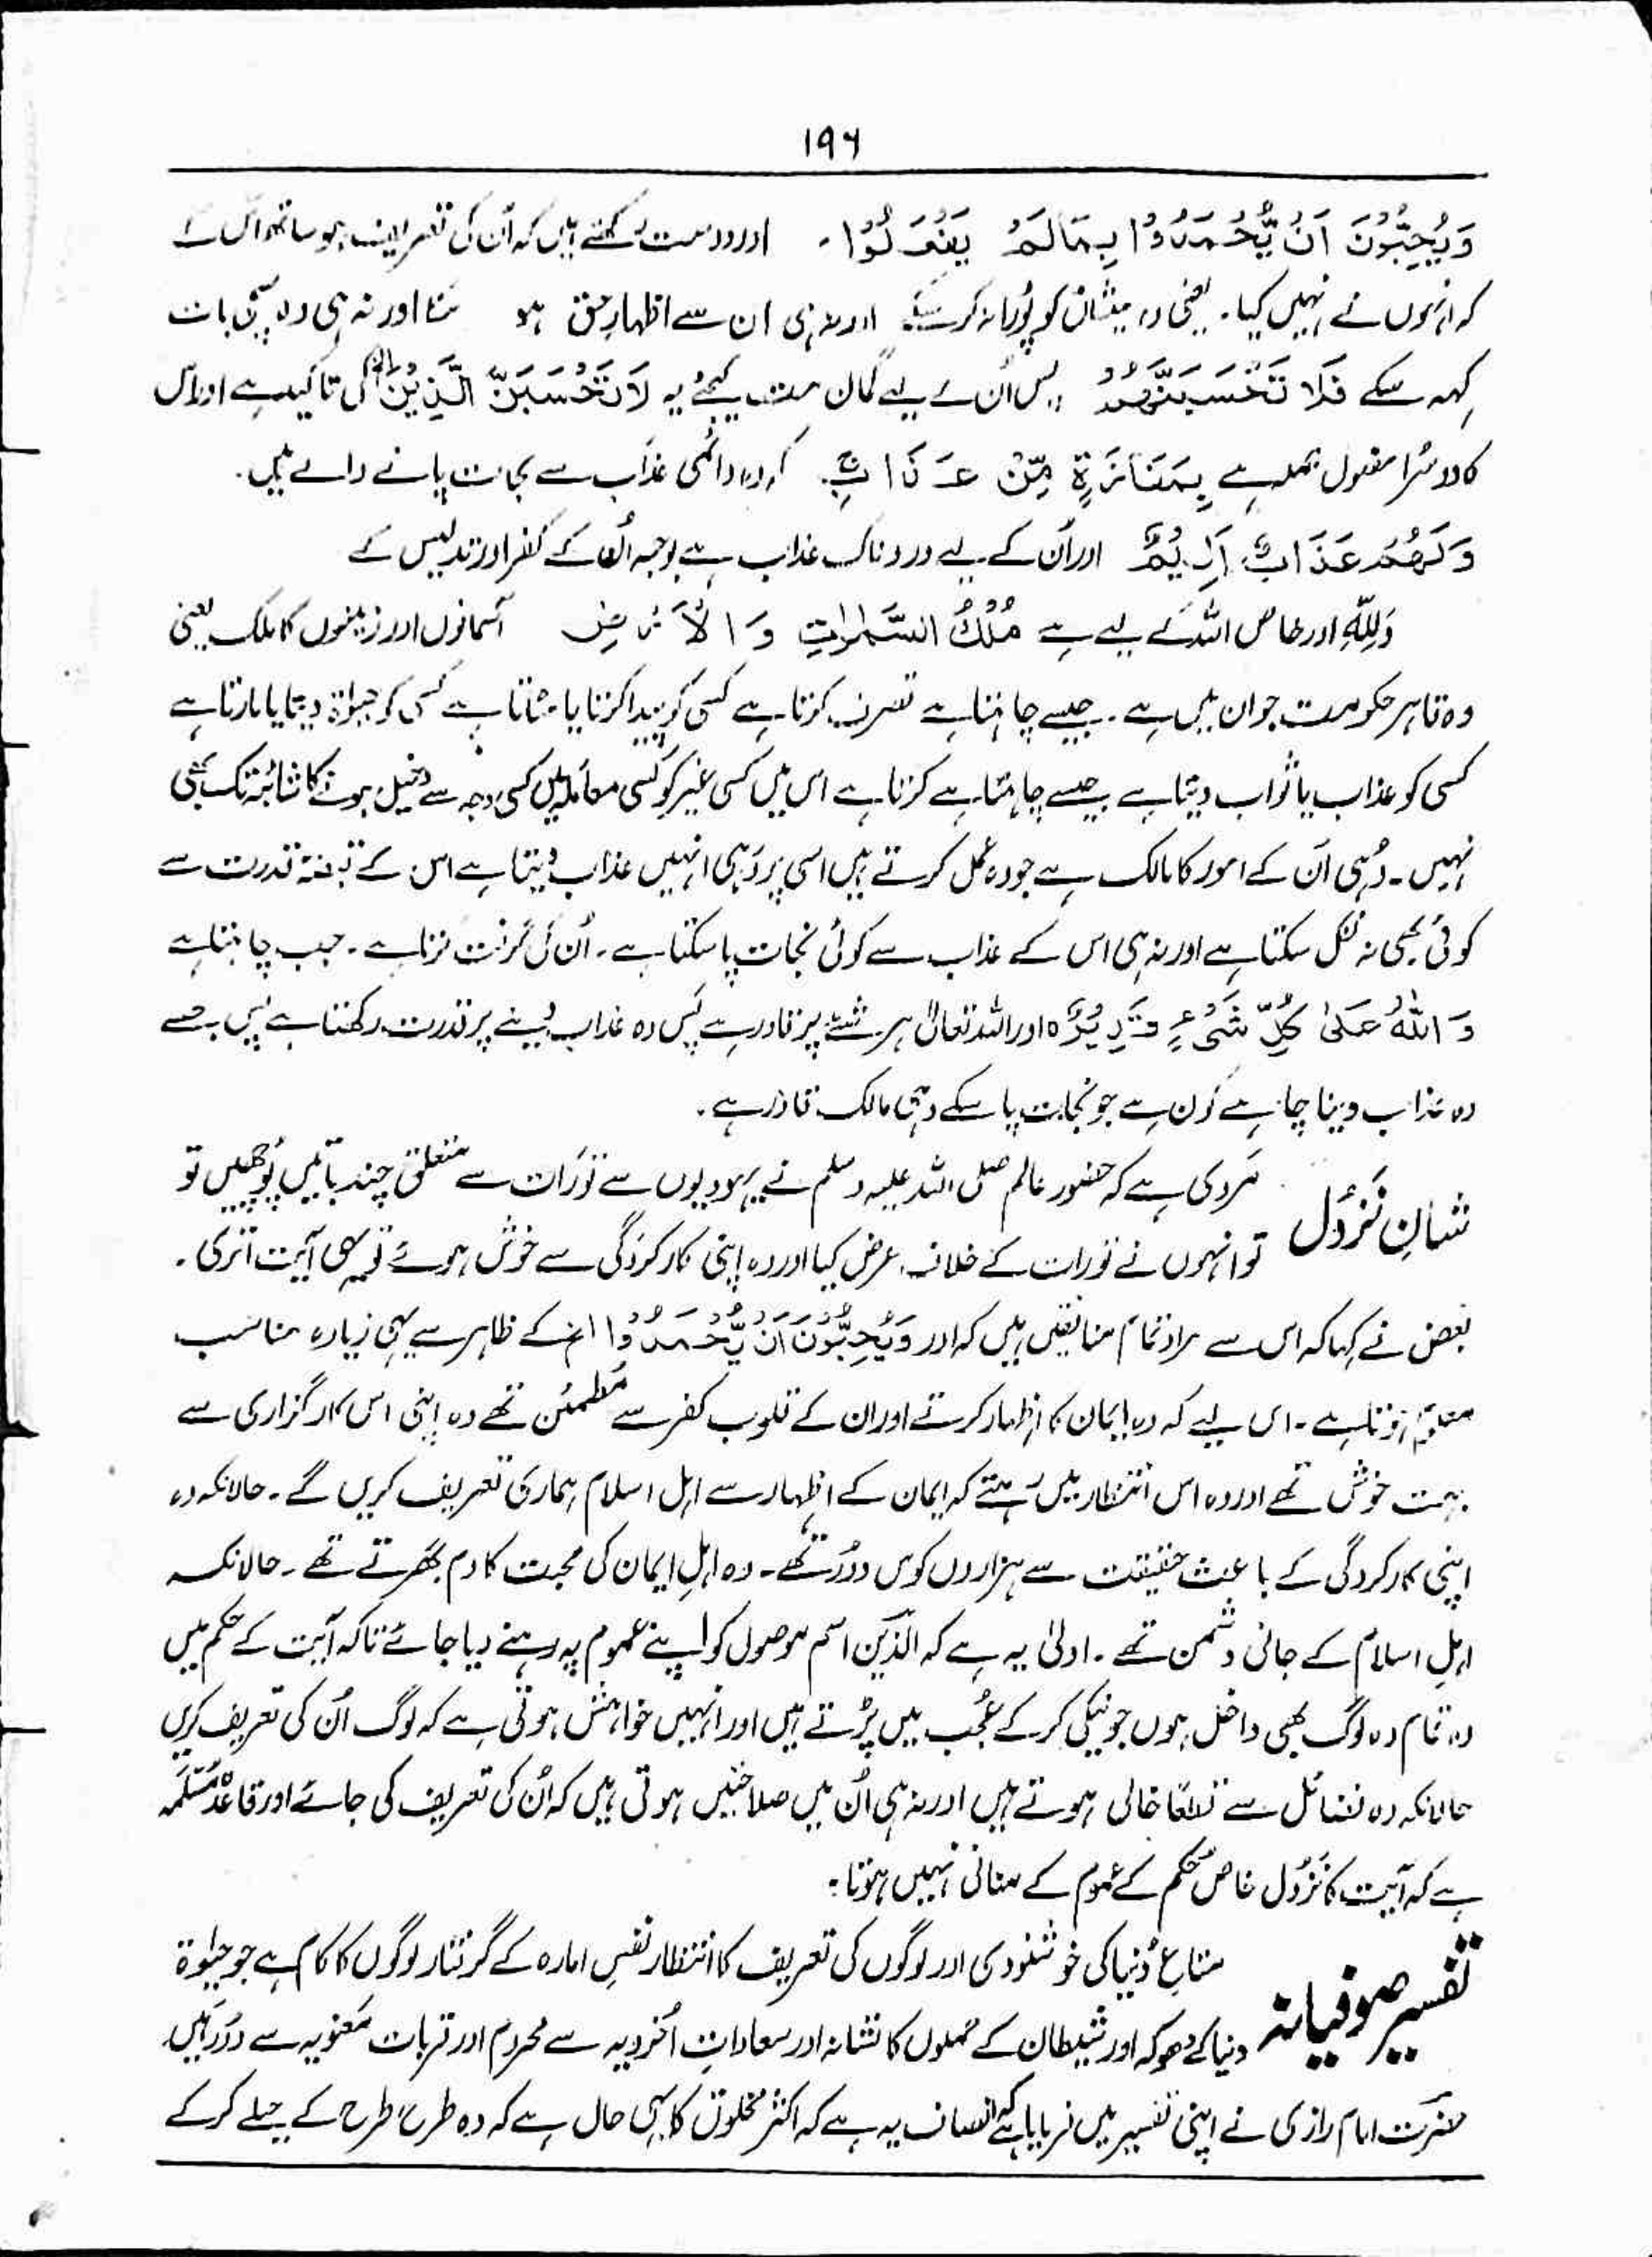 ۱۹۶
وَيُحِبُّونَ اَنْ يُّحْمَدُوْا بِمَا لَمْ يَفْعَلُوْا۔ اور دوست رکھتے ہیں کہ اُن کی تعریف ہو ساتھ اس کے
کہ انہوں نے نہیں کیا۔ یعنی وہ میثاق کو پُورا نہ کر سکے اور نہ ہی ان سے اظہارِ حق ہو سکا اور نہ ہی وہ سچی بات
کہہ سکے فَلَا تَحْسَبَنَّهُمْ پس اُن کے لیے گمان مت کیجئے یہ لَا تَحْسَبَنَّ الَّذِیْنَ الخ کی تاکید ہے اور اس
کا دوسُرا مفعول جملہ ہے بِمَفَازَةٍ مِّنْ عَذَابٍ کہ وہ دائمی عذاب سے نجات پانے والے ہیں۔
وَلَهُمْ عَذَابٌ اَلِيْمٌ اور اُن کے لیے دردناک عذاب ہے بوجہ اُن کے کفر اور تدلیس کے
وَلِلّٰهِ اور خاص اللہ کے لیے ہے مُلْكُ السَّمٰوٰتِ وَالْاَرْضِ آسمانوں اور زمینوں کا ملک یعنی
وہ قاہر حکومت جو ان میں ہے۔ جیسے چاہتا ہے تصرف کرتا ہے کسی کو پیدا کرتا یا مٹاتا ہے کسی کو حیٰوۃ دیتا یا مارتا ہے
کسی کو عذاب یا ثواب دیتا ہے جیسے چاہتا ہے کرتا ہے اس میں کسی غیر کو کسی معاملہ میں کسی وجہ سے دخیل ہونے کا شائبہ تک بھی
نہیں۔ وُہی اُن کے امور کا مالک ہے جو وہ عمل کرتے ہیں اسی پر وہی انہیں عذاب دیتا ہے اس کے قبضۂ قدرت سے
کوئی بھی نہ نکل سکتا ہے اور نہ ہی اس کے عذاب سے کوئی نجات پا سکتا ہے۔ اُن کی گرفت کرتا ہے۔ جب چاہتا ہے
وَاللّٰهُ عَلٰى كُلِّ شَىْءٍ قَدِيْرٌ ٥ اور اللہ تعالیٰ ہر شئے پر قادر ہے پس وہ عذاب دینے پر قدرت رکھتا ہے پس جسے
وہ عذاب دینا چاہے کون ہے جو نجات پا سکے وہی مالک قادر ہے۔
شانِ نَزُول مروی ہے کہ حضور عالم صلی اللہ علیہ وسلم نے یہودیوں سے تورات سے متعلق چند باتیں پُوچھیں تو
تو انہوں نے تورات کے خلاف عرض کیا اور وہ اپنی کارکردگی سے خوش ہوئے تو یہی آیت اتری۔
بعض نے کہا کہ اس سے مراد تمام منافقین ہیں کہ اور وَيُحِبُّوْنَ اَنْ يُّحْمَدُوْا الخ کے ظاہر سے یہی زیادہ مناسب
معلوم ہوتا ہے۔ اس لیے کہ وہ ایمان کا اظہار کرتے اور ان کے قلوب کفر سے مُطمئن تھے وہ اپنی اس کارگزاری سے
بہت خوش تھے اور وہ اس انتظار میں رہتے کہ ایمان کے اظہار سے اہل اسلام ہماری تعریف کریں گے۔ حالانکہ وہ
اپنی کارکردگی کے باعث حقیقت سے ہزاروں کوس دور تھے۔ وہ اہلِ ایمان کی محبت کا دم بھرتے تھے۔ حالانکہ
اہلِ اسلام کے جانی دشمن تھے۔ اولیٰ یہ ہے کہ الذین اسم موصول کو اپنے عموم پہ رہنے دیا جائے تاکہ آیت کے حکم میں
وہ تمام وہ لوگ بھی داخل ہوں جو نیکی کر کے عُجب میں پڑتے ہیں اور انہیں خواہش ہوتی ہے کہ لوگ اُن کی تعریف کریں
حالانکہ وہ فضائل سے قطعًا خالی ہوتے ہیں اور نہ ہی اُن میں صلاحتیں ہوتی ہیں کہ اُن کی تعریف کی جائے اور قاعدہ مُسلّمہ
ہے کہ آیت کا نَزُول خاص حکم کے عموم کے منافی نہیں ہوتا۔
تفسیر صوفیانہ متاعِ دُنیا کی خوشنودی اور لوگوں کی تعریف کا انتظار نفسِ امارہ کے گرفتار لوگوں کا کام ہے جو حیٰوۃ
دنیا کے دھوکہ اور شیطان کے حملوں کا نشانہ اور سعاداتِ اُخرویہ سے محروم اور قربات معنویہ سے دور ہیں
حضرت امام رازی نے اپنی تفسیر میں فرمایا ہے کہ انصاف یہ ہے کہ اکثر مخلوق کا یہی حال ہے کہ وہ طرح طرح کے حیلے کر کے